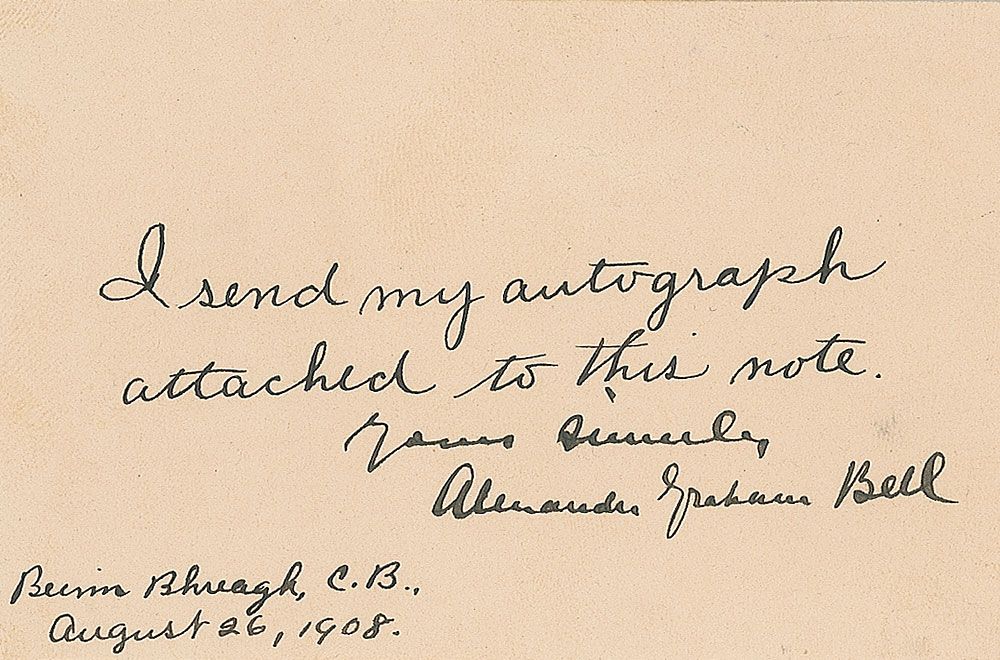 I send my autograph
attached to this note.
Yours sincerely,
Alexander Graham Bell
Beinn Bhreagh, C.B.,
August 26, 1908.